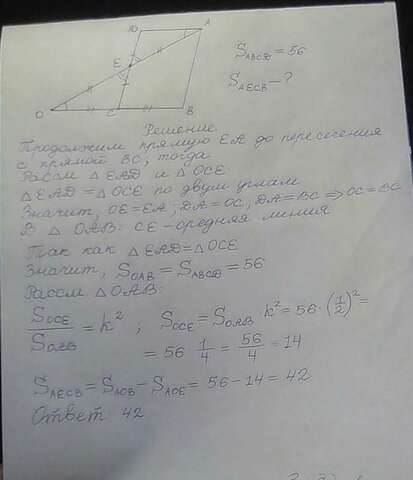 D A
E
O C B
S ABCD = 56
S AECB - ?
Решение
Продолжим прямую EA до пересечения
с прямой BC; тогда
Рассм △EAD и △OCE
△EAD = △OCE по двум углам
Значит, OE=EA; DA=OC, DA=BC ⇒ OC=BC
В △OAB: CE - средняя линия
Так как △EAD=△OCE
Значит, S OAB = S ABCD = 56
Рассм. △OAB:
S OCE / S OAB = k² ; S OCE = S OAB · k² = 56 · (1/2)² =
= 56 · 1/4 = 56/4 = 14
S AECB = S AOB - S AOE = 56 - 14 = 42
Ответ: 42